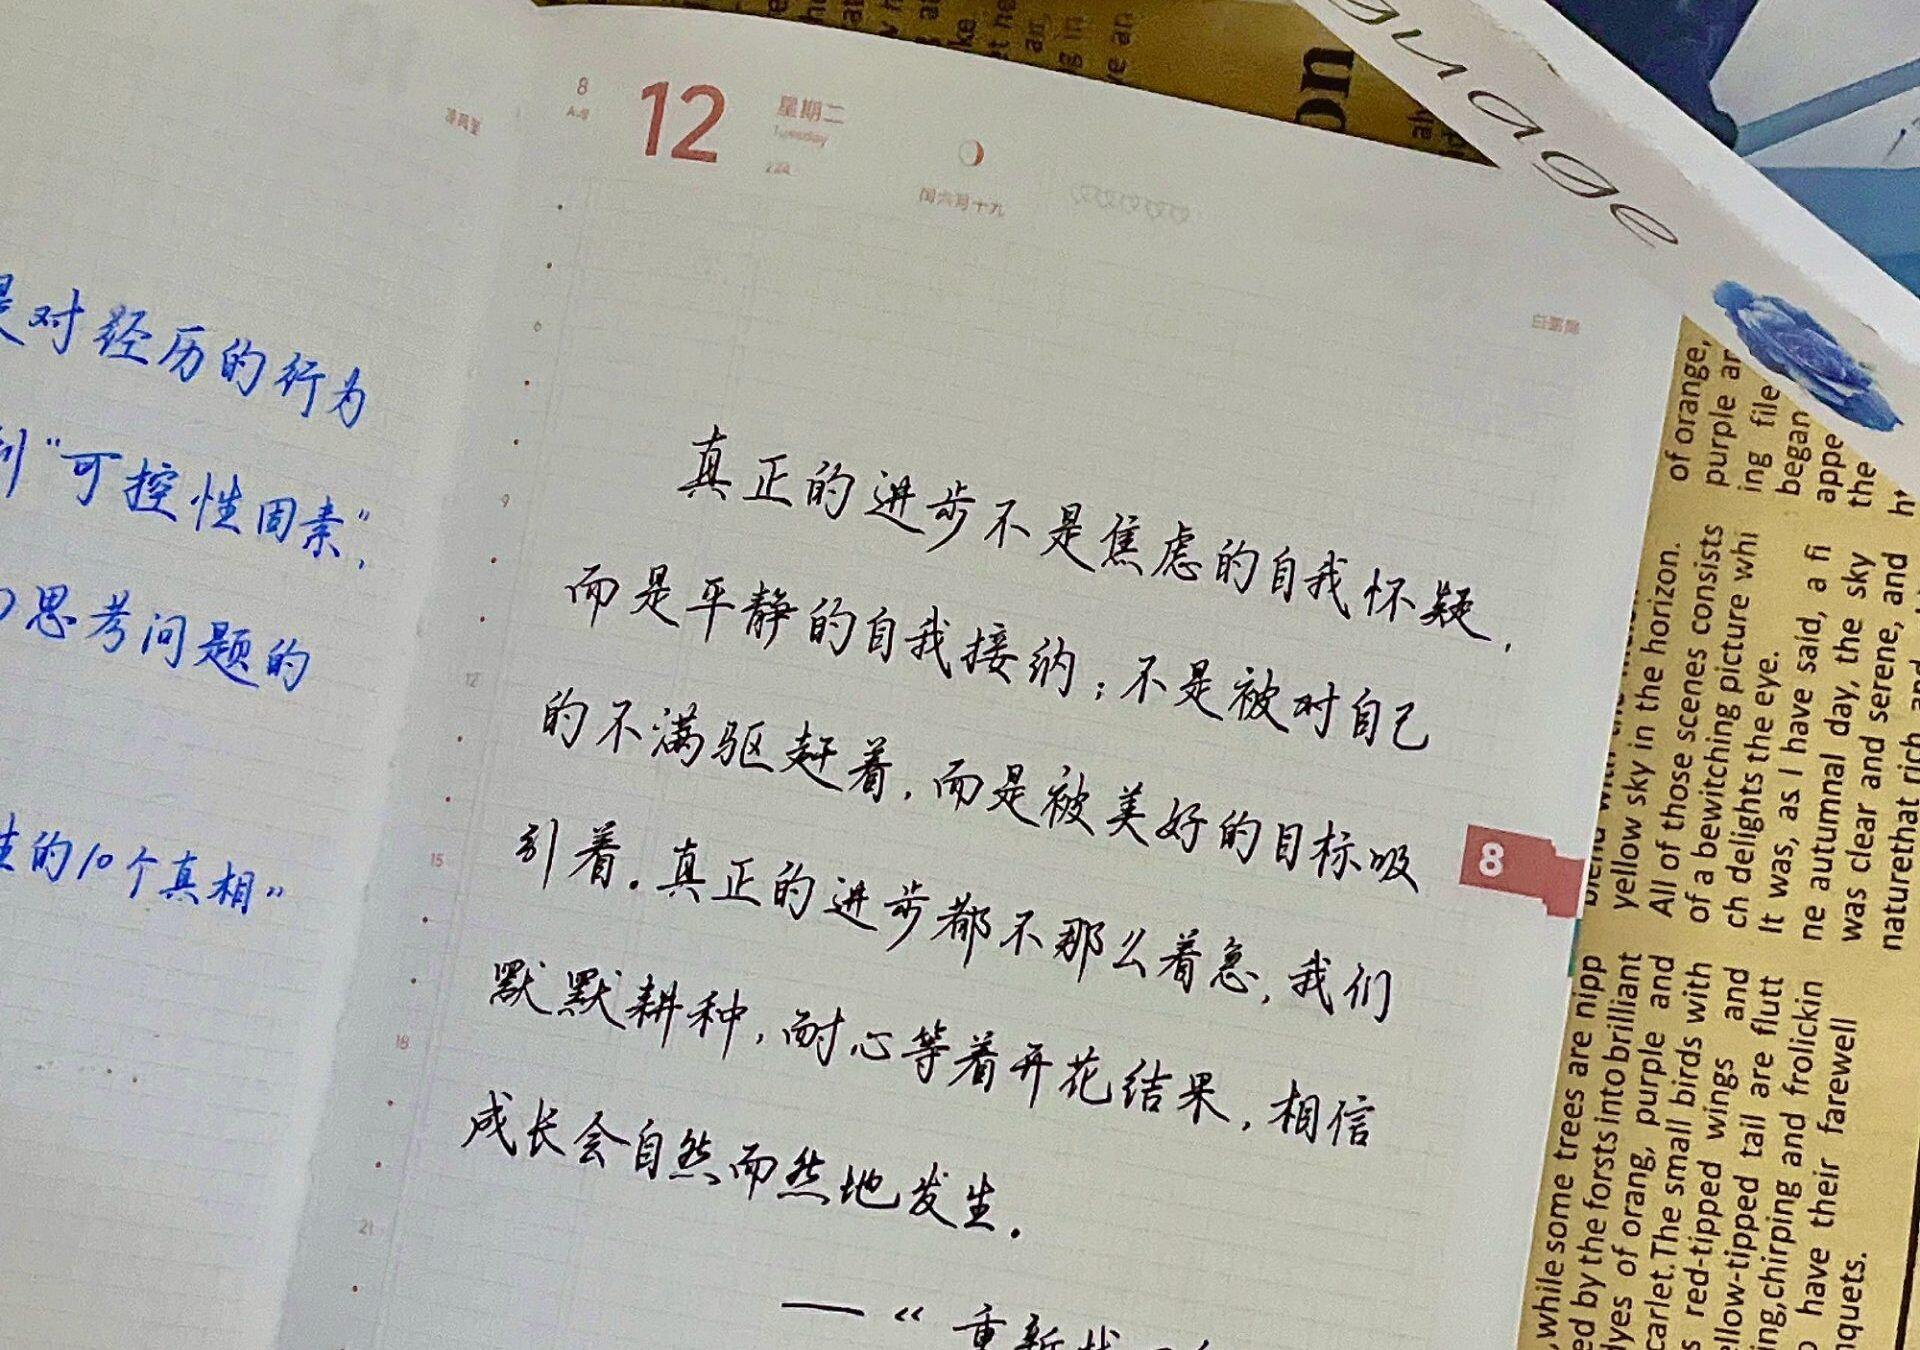 是对经历的行为
到“可控性因素”,
思考问题的
的10个真相”
8
12
星期二
Tuesday
224
闰六月十九
6
9
12
15
18
21
真正的进步不是焦虑的自我怀疑,
而是平静的自我接纳;不是被对自己
的不满驱赶着,而是被美好的目标吸
引着。真正的进步都不那么着急,我们
默默耕种,耐心等着开花结果,相信
成长会自然而然地发生。
——“重新
8
guage
on
of orange,
purple ar
ing file
began
appe
the
yellow sky in the horizon.
All of those scenes consists
of a bewitching picture whi
ch delights the eye.
It was, as I have said, a fi
ne autumnal day, the sky
was clear and serene, and
naturethat rich and
, while some trees are nipp
ed by the forsts into brilliant
dyes of orang, purple and
carlet.The small birds with
s red-tipped wings and
ellow-tipped tail are flutt
ing,chirping and frolickin
o have their farewell
nquets.